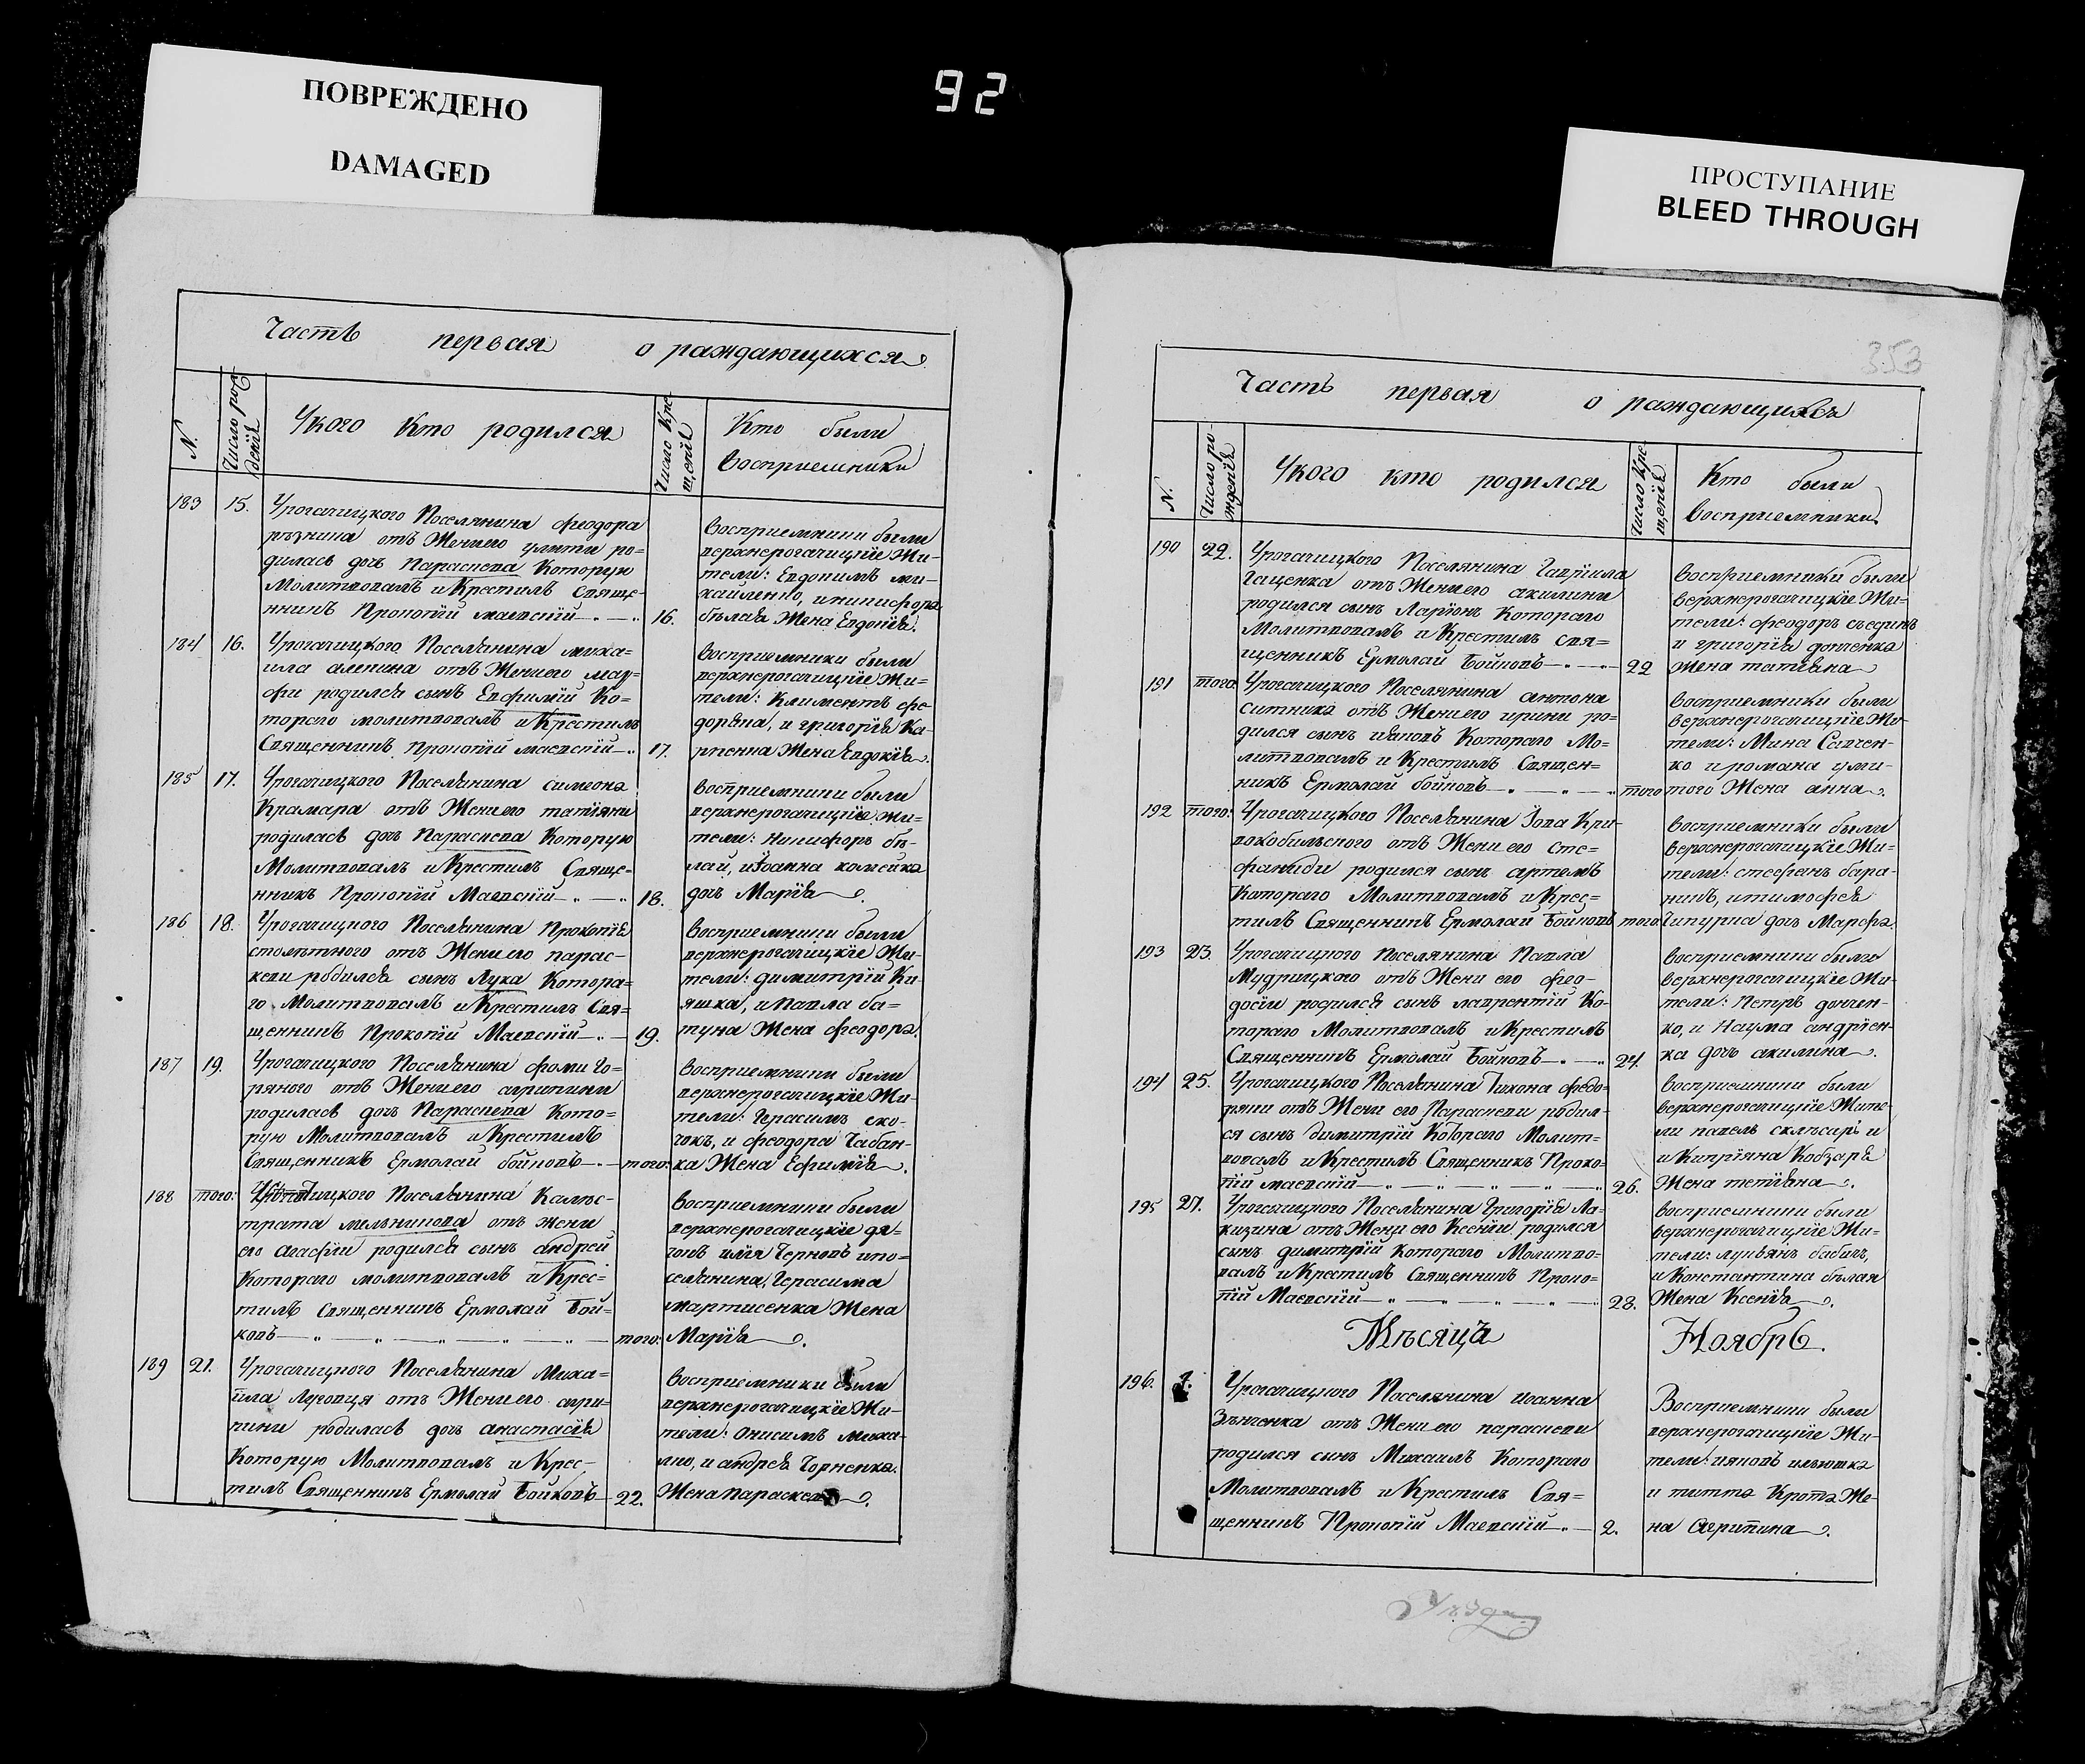 ПОВРЕЖДЕНО
DAMAGED
92
ПРОСТУПАНИЕ
BLEED THROUGH
353
Часть первая о раждающихся
N.
Число рож
денїя
Укого Кто родился
Число Кре-
щенїя
Кто были
восприемники
183 15.
Урогачицкого Поселянина феодора
отъ Жени его улити ро=
дилась дочь Параскева Которую
Молитвовалъ и Крестилъ Свяще-
нникъ Прокопїй маевскїй 16.
восприемники были
верхнерогачицкїе Жи-
тели: Евдокимъ ми-
хайленко, и никифора
бѣлая Жена Евдокїя.
184 16.
Урогачицкого Поселянина миха=
ила алепина отъ Жени его мар-
фи родился сынъ Евфимїй Ко-
тораго молитвовалъ и Крестилъ
Священникъ Прокопїй маевскїй 17.
восприемники были
верхнерогачицкїе Жи=
тели: Климентъ фе
и григорїя Ка-
рпенка Жена Евдокїя.
185 17.
Урогачицкого Поселянина симеона
Крамара отъ Жени его татїяни
родилась дочь Параскева Которую
Молитвовалъ и Крестилъ Свяще-
нникъ Прокопїй Маевскїй 18.
восприемники были
верхнерогачицкїе жи=
тели: Никифоръ бѣ-
лай, и Іоанна
дочь Марїя.
186 18.
Урогачицкого Поселянина Прокопїя
столѣтного отъ Жени его парас-
кеви родился сынъ Лука Котора=
го Молитвовалъ и Крестилъ Свя=
щенникъ Прокопїй Маевскїй 19.
восприемники были
верхнерогачицкїе Жи-
тели: димитрїй Ки
яшка, и Павла ба=
туна Жена феодора.
187 19.
Урогачицкого Поселянина фоми Го=
ряного отъ Жени его агрипини
родилась дочь Параскева Кото=
рую Молитвовалъ и Крестилъ
Священникъ Ермолай бойковъ того:
восприемники были
верхнерогачицкїе Жи-
тели: Герасимъ ско-
токъ, и феодора Чабан-
ка Жена Ефимїя.
188 того:
Урогачицкого Поселянина Калис-
трата мельникова отъ жени
его агафїи родился сынъ андрей
Котораго молитвовалъ и Крес=
тилъ Священникъ Ермолай Бой-
ковъ того:
восприемники были
верхнерогачицкїе дя-
чокъ илїя Черновъ и по=
селянина, Герасима
мартисенка Жена
Марїя.
189 21.
Урогачицкого Поселянина Миха=
ила Луговця отъ Жени его агри-
пини родилась дочь анастасїя
Которую Молитвовалъ и Крес-
тилъ Священникъ Ермолай Бойковъ 22.
восприемники были
верхнерогачицкїе Жи-
тели: Онисимъ миха-
лко, и андрея Чорненка.
Жена параскева.
Часть первая о раждающихся
N.
Число ро-
жденїя
Укого кто родился
Число Кре-
щенїя
Кто были
восприемники
190 22.
Урогачицкого Поселянина Гаврїила
Гащенка отъ Жени его акилини
родился сынъ Ларїонъ Котораго
Молитвовалъ и Крестилъ свя=
щенникъ Ермолай Бойковъ 22
восприемники были
верхнерогачицкїе Жи=
тели: феодоръ съединъ
и григорїя донченка
Жена татїяна
191 того
Урогачицкого Поселянина антона
ситника отъ Жени его ирини ро=
дился сынъ иаковъ Котораго Мо=
литвовалъ и Крестилъ Священ=
никъ Ермолай бойковъ того
восприемники были
верхнерогачицкїе Жи-
тели: Мина Савчен-
ко и романа ули-
того Жена анна.
192 того:
Урогачицкого Поселянина Іова Кри-
вокобильского отъ Жени его сте=
фаниди родился сынъ артемъ
Котораго Молитвовалъ и Крес=
тилъ Священникъ Ермолай Бойковъ того:
восприемники были
верхнерогачицкїе Жи=
тели: стефанъ бара-
никъ, и тимофея
Чипурна дочь Марфа.
193 23.
Урогачицкого Поселянина Павла
Мудрицкого отъ Жени его фео-
досїи родился сынъ лаврентїй Ко-
тораго Молитвовалъ и Крестилъ
Священникъ Ермолай Бойковъ 24.
восприемники были
верхнерогачицкїе Жи-
тели: Петръ дончен-
ко, и Наума андрїен-
ка дочь акилина.
194 25.
Урогачицкого Поселянина Тихона федо-
ряки отъ Жени его Параскеви родил-
ся сынъ димитрїй Котораго Молит=
вовалъ и Крестилъ Священникъ Проко-
пїй маевскїй 26.
восприемники были
верхнерогачицкїе Жите-
ли павелъ склѣсарь и
и Кипрїяна Кобзаря
Жена тетїяна.
195 27.
Урогачицкого Поселянина Григорїя Ла-
кизина отъ Жени его Ксенїи родился
сынъ димитрїй Котораго Молитво-
валъ и Крестилъ Священникъ Проко=
пїй Маевскїй 28.
восприемники были
верхнерогачицкїе Жи-
тели: лукїянъ бабичъ,
и Константина бѣлая
Жена Ксенїя.
Мѣсяца Ноябрь.
196. 1.
Урогачицкого Поселянина иоанна
Зѣнченка отъ Жени его параскеви
родился сынъ Михаилъ Котораго
Молитвовалъ и Крестилъ Свя=
щенникъ Прокопїй Маевскїй 2.
Восприемники были
верхнерогачицкїе Жи-
тели: иаковъ ильюшка
и титта Крота Же-
на Агрипина.